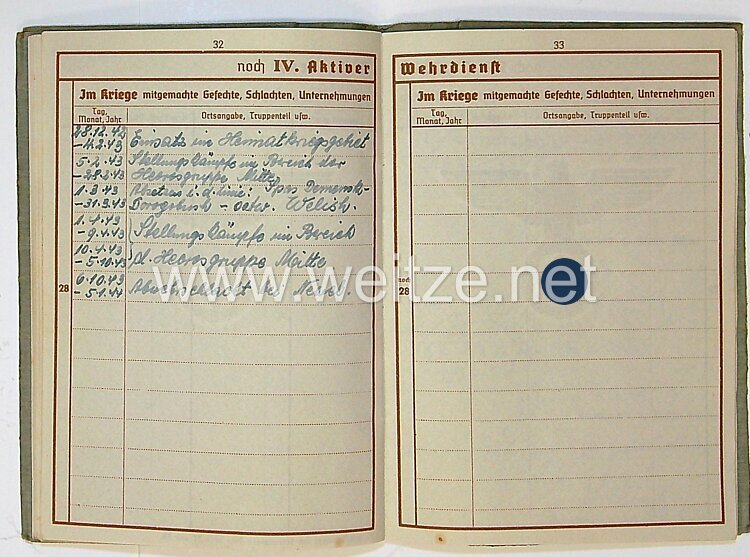 32
noch IV. Aktiver
Im Kriege mitgemachte Gefechte, Schlachten, Unternehmungen
Tag, Monat, Jahr
Ortsangabe, Truppenteil usw.
28.12.42 Einsatz im Heimatkriegsgebiet
-4.2.43
5.2.43 Stellungskämpfe im Bereich der
-28.2.43 Heeresgruppe Mitte
1.3.43 i. d. Linie:
-31.3.43 Dorogobusch - Welish.
1.4.43
-9.4.43 Stellungskämpfe im Bereich
10.4.43
-5.10.43 d. Heeresgruppe Mitte
28
6.10.43 Abwehrschlacht bei Nevel.
-5.1.44
33
Wehrdienst
Im Kriege mitgemachte Gefechte, Schlachten, Unternehmungen
Tag, Monat, Jahr
Ortsangabe, Truppenteil usw.
noch
28
www.weitze.net